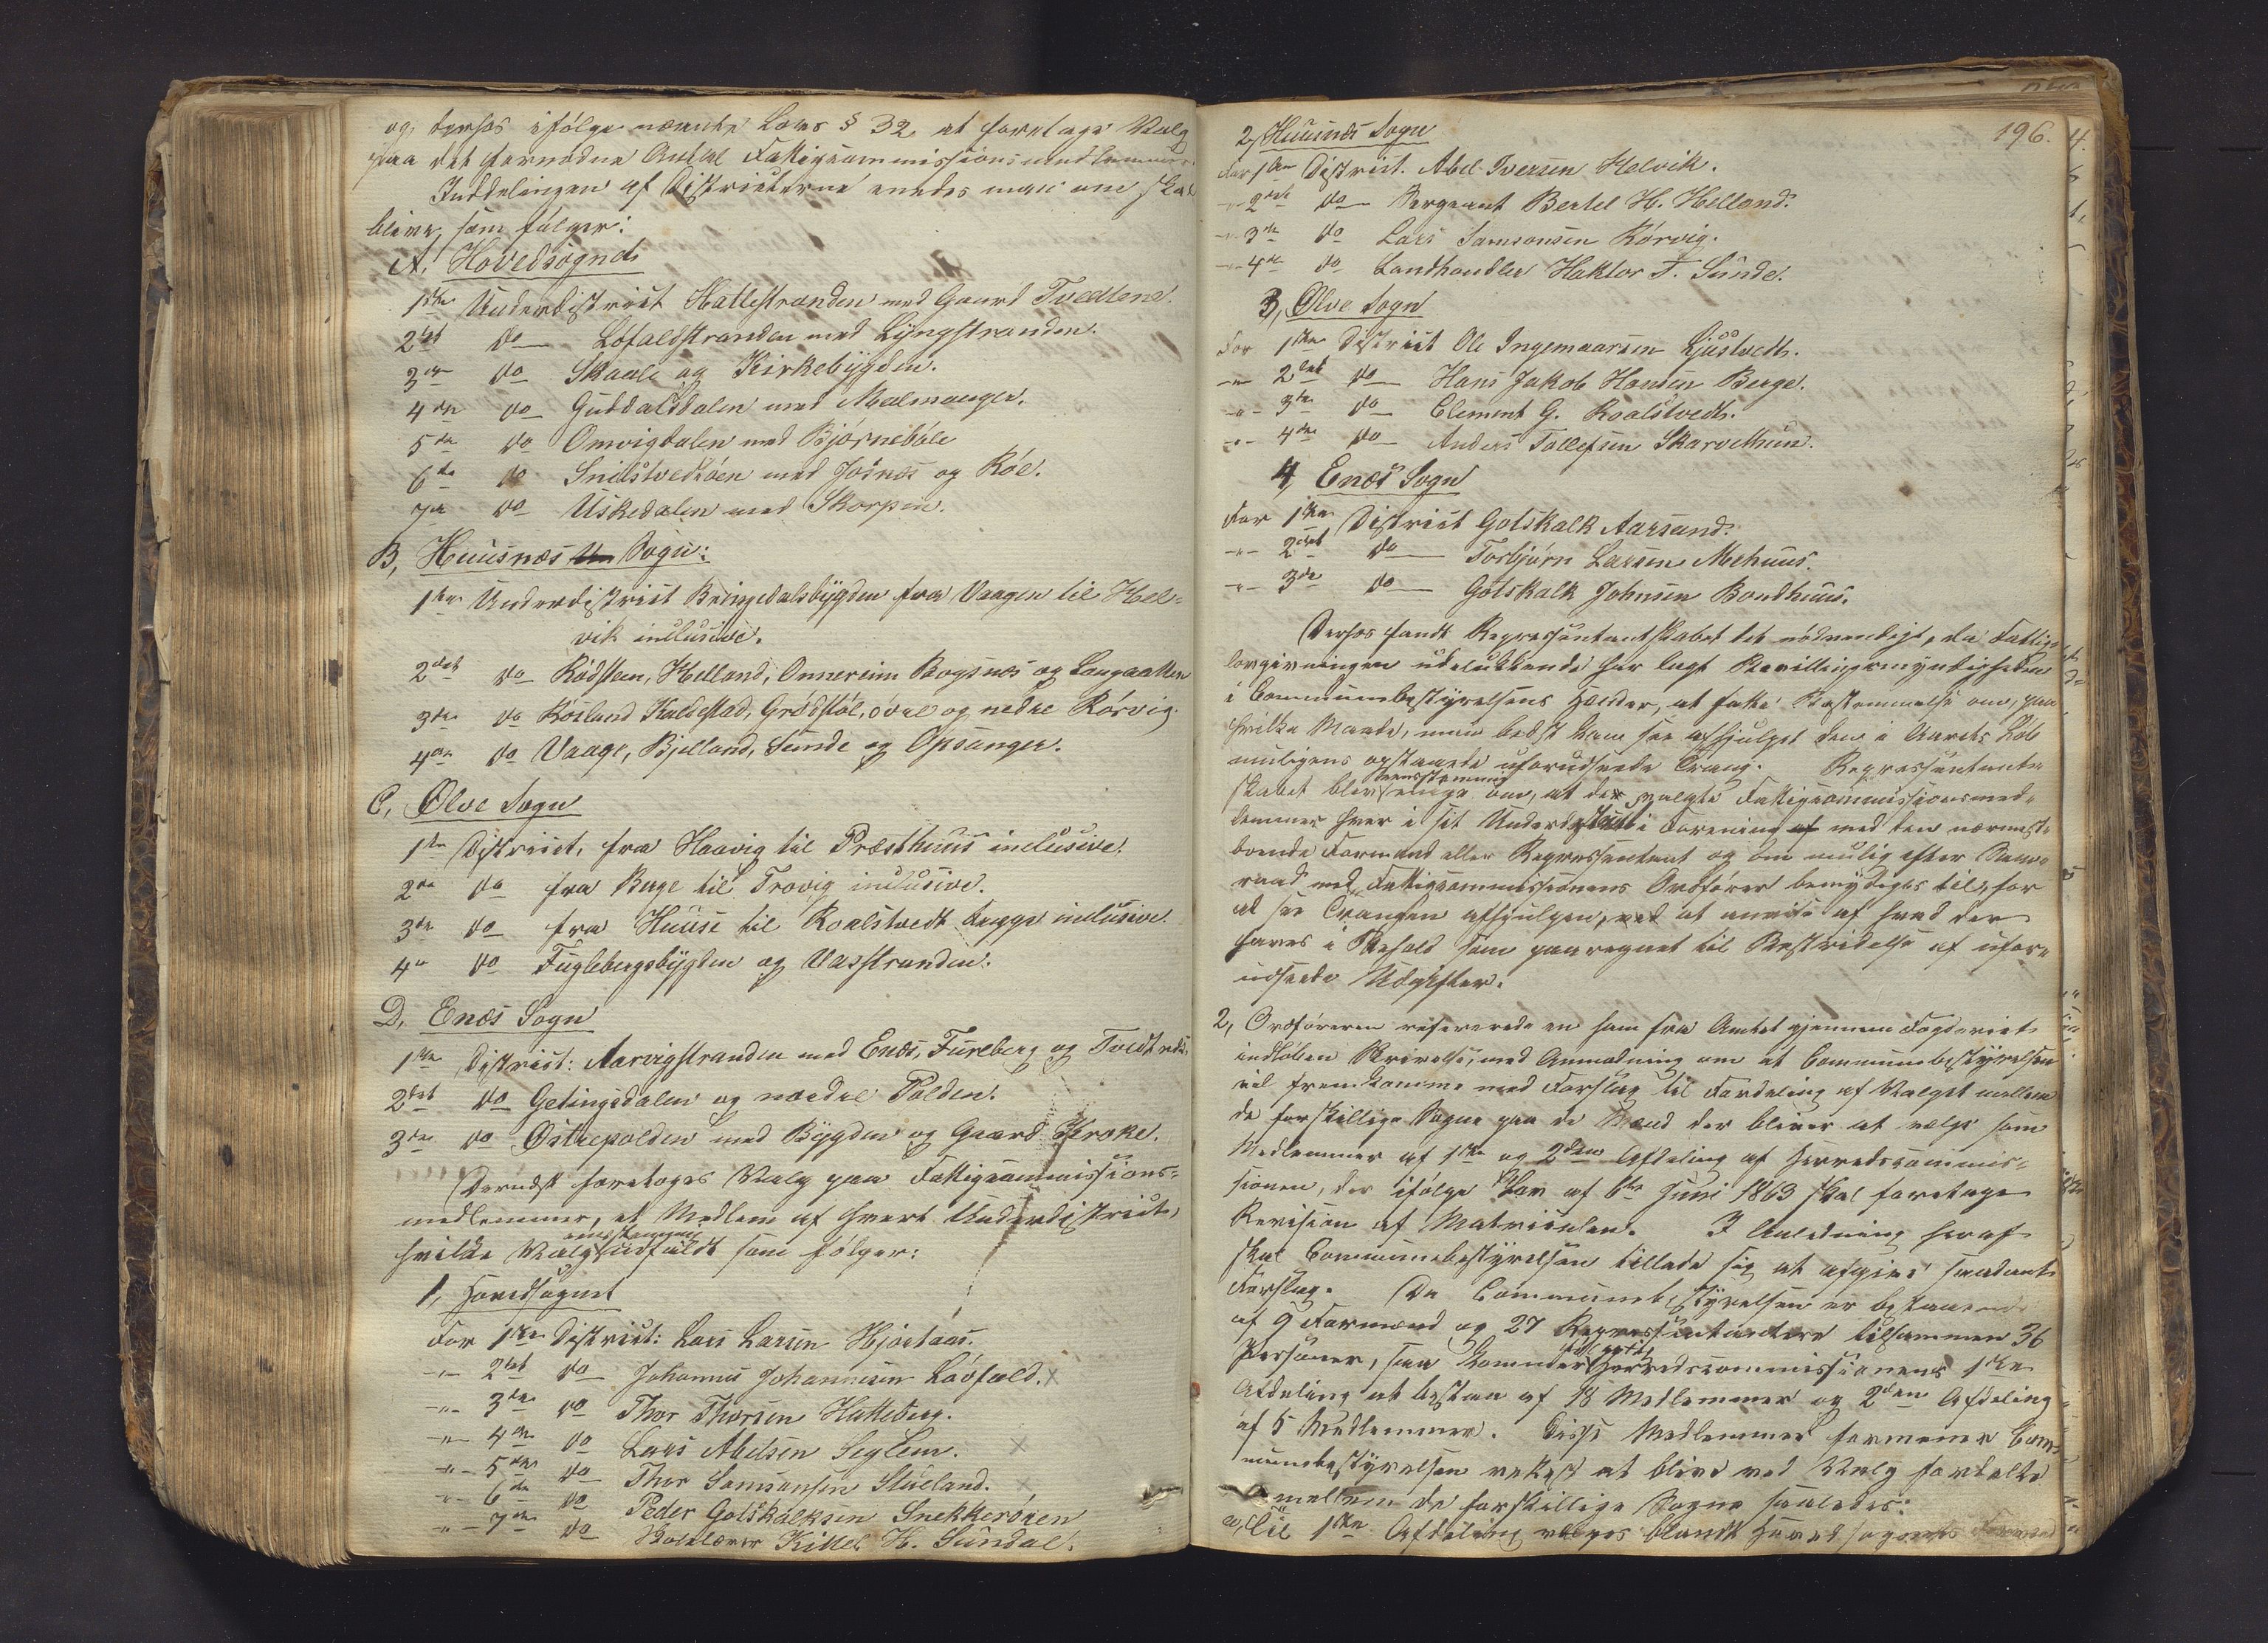 og, derhos ifølge nævnte Lovs § 32 at foretage Valg
paa det fornødne Antal Fattigcommissionsmedlemmer.
Inddelingen af Districterne enedes man om skal
blive som følger:
A, Hovedsognet
1ste Underdistrict Hattestranden med Gaard Tvedtene.
2det do Løfaldstranden med Lyngstranden.
3die do Skaale og Kirkebygden.
4de do Guddalsdalen med Malmanger.
5te do Omvigdalen med Bjørnebøle
6te do Snilstvedtøen med Josnæs og Røe.
7de do Uskedalen med Skorpen.
B, Huusnæs Sogn:
1ste Underdistrict Bringedalsbygden fra Vaagen til Hel-
vik inclusive.
2det do Rødsteen, Helland, Onnereim Bogsnæs og Laugaatten
3die do Røsland Kaldestad, Grødstøl, øvre og nedre Rørvig.
4de do Vaage, Bjelland, Sunde og Opsanger.
C, Ølve Sogn
1ste District, fra Haavig til Præsthuus inclusive.
2det do fra Berge til Trovig inclusive.
3die do fra Huuse til Roalstvedt begge inclusive
4de do Fuglebergsbygden og Vasstranden.
D, Enæs Sogn
1ste District: Aarvigstranden med Enæs, Fureberg og Tvedtnæs.
2det do Getingsdalen og nordre Polden.
3die do Østrepolden med Bygden og Gaard Kroke.
Dernæst foretoges Valg paa Fattigcommissions-
medlemmer, et Medlem af hvert Underdistrict,
eenstemmig
hvilke Valg udfaldt som følger:
1, Hovedsognet
For 1ste District: Lars Larsen Hjortaas.
-"- 2det do Johannes Johannesen Løvfald. x
-"- 3die do Thor Thorsen Hatteberg.
-"- 4de do Lars Abelsen Seglem. x
-"- 5te do Thor Samsonsen Stueland. x
-"- 6te do Peder Gotskalksen Snekkerøen
-"- 7de do Skolelærer Kittel H. Sundal.
196.
2, Huusnæs Sogn
For 1ste District. Abel Iversen Helvik.
-"- 2det do Sergeant Bertel H. Helland.
-"- 3die do Lars Samsonsen Rørvig.
-"- 4de do Landhandler Haktor T. Sunde.
3, Ølve Sogn
For 1ste District Ole Ingemaarsen Ljustvedt.
-"- 2det do Hans Jakob Hansen Berge.
-"- 3die do Clement G. Roalstvedt.
-"- 4de do Anders Tollefsen Skarvethun.
4, Enæs Sogn
For 1ste District Gotskalk Aarsand.
-"- 2det do Torbjørn Larsen Mehuus.
-"- 3die do Gotskalk Johnsen Bondhuus.
Derhos fandt Repræsentantskabet det nødvendigt, da Fattig-
lovgivningen udelukkende har lagt Bevillingsmyndigheden
i Communebestyrelsens Hænder, at fatte Bestemmelse om, paa
hvilken Maade, man bedst kan see afhjulpet den i Aarets Løb
muligens opstaaede uforudseede Trang. Repræsentant-
eenstemmig
skabet blev enige om, at de valgte Fattigcommissionsmed-
lemmer hver i sit Underdistrict i Forening med den nærmest
boende Formand eller Repræsentant og om mulig efter Sam-
raad med Fattigcommissionens Ordfører bemyndiges til, for
at see Trangen afhjulpen, ved at anvise af hvad der
haves i Behold som paaregnet til Bestridelse af ufor-
udseede Udgifter.
2, Ordføreren refererede en ham fra Amtet gjennem Fogderiet
indløben Skrivelse, med Anmodning om at Communebestyrelsen
vil fremkomme med Forslag til Fordeling af Valget mellem
de forskillige Sogne paa de Mænd der bliver at vælge som
Medlemmer af 1ste og 2den Afdeling af Herredscommis-
sionen, der ifølge Lov af 6te Juni 1863 skal foretage
Revision af Matriculen. I Anledning heraf
skal Communebestyrelsen tillade sig at afgive saadant
Forslag. Da Communebestyrelsen er bestaaende
af 9 Formænd og 27 Repræsentantere tilsammen 36
Personer, saa kommer Herredscommissionens 1ste
Afdeling at bestaa af 18 Medlemmer og 2den Afdeling
af 5 Medlemmer. Disse Medlemmer formener Com-
munebestyrelsen rettest at blive ved Valg fordelte
mellem de forskillige Sogne saaledes:
a, Til 1ste Afdeling vælges blandt Hovedsognets Formænd